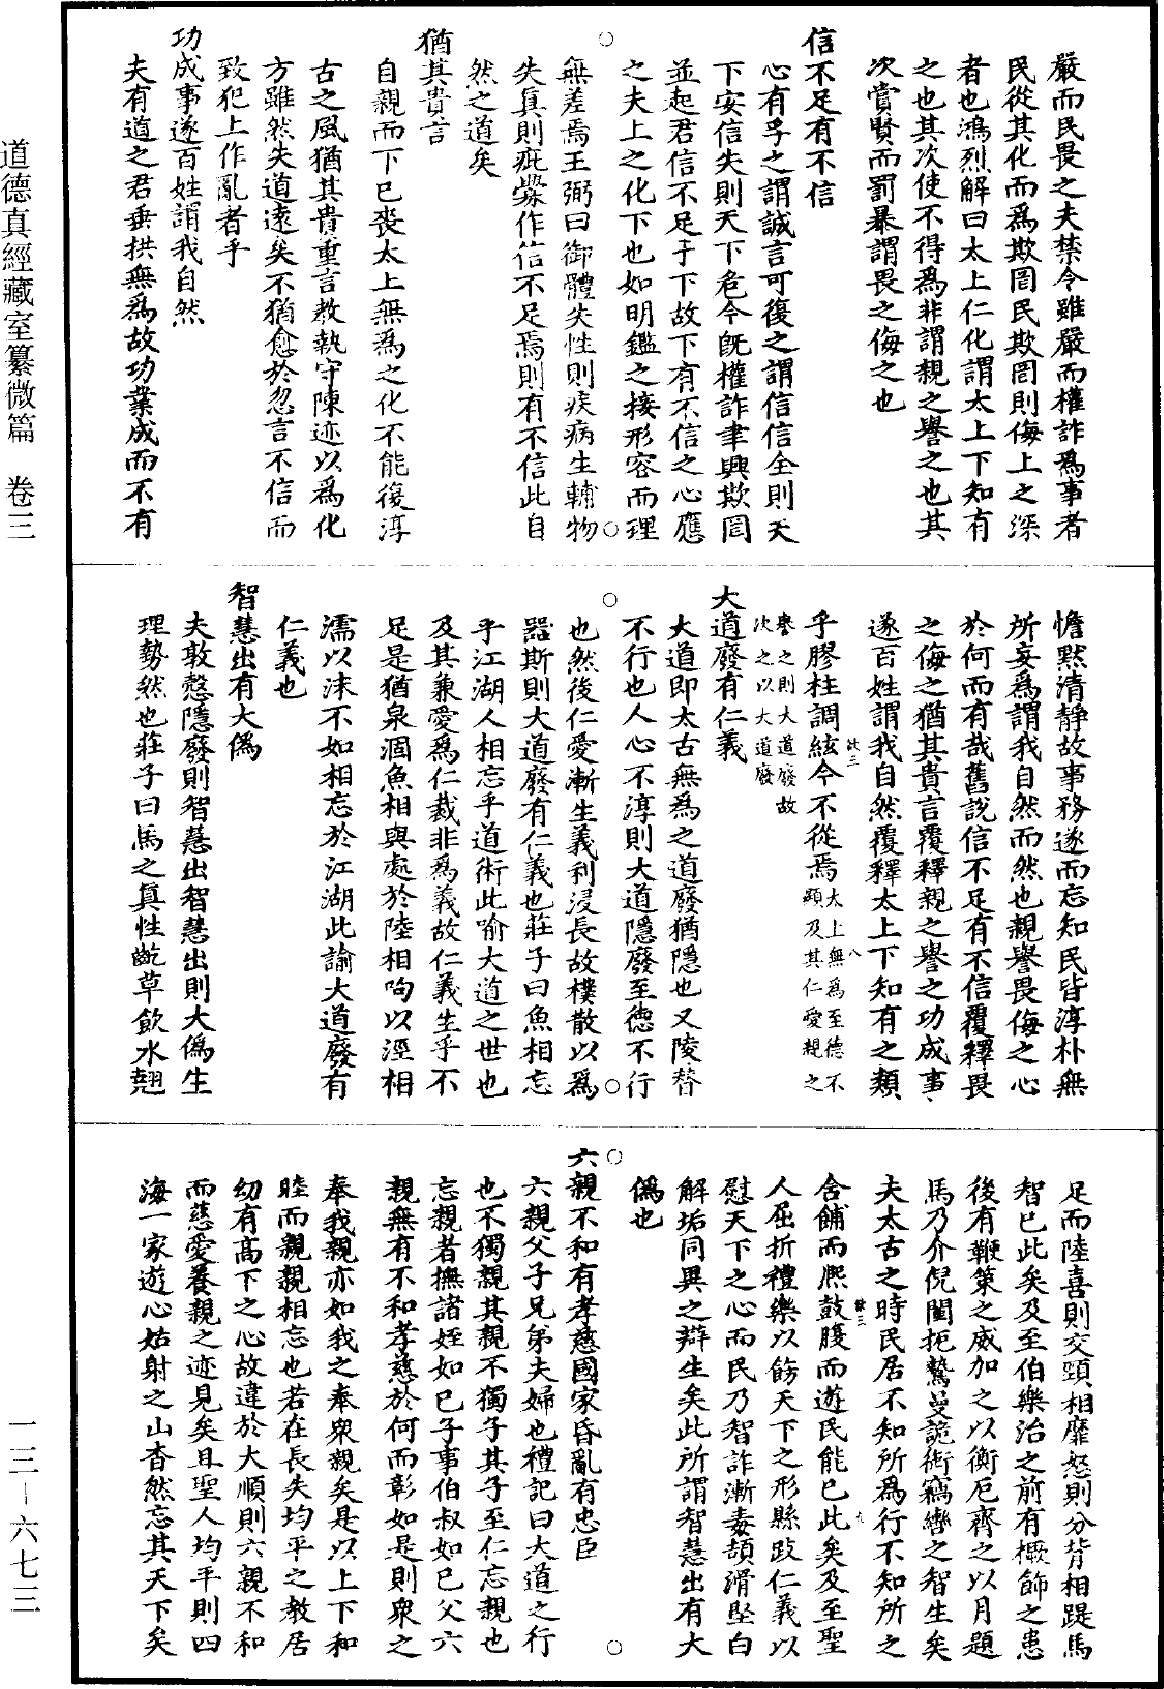 嚴而民畏之夫禁令雖嚴而權詐爲事者
民從其化而爲欺罔民欺罔則侮上之深
者也鴻烈解曰太上仁化謂太上下知有
之也其次使不得爲非謂親之譽之也其
次賞賢而罰暴謂畏之侮之也
信不足有不信
心有孚之謂誠言可復之謂信信全則天
下安信失則天下危今旣權詐聿興欺罔
並起君信不足于下故下有不信之心應
之夫上之化下也如明鑑之接形容而理
無差焉王弼曰御體失性則疾病生輔物
失眞則疵釁作信不足焉則有不信此自
然之道矣
猶其貴言
自親而下已喪太上無爲之化不能復淳
古之風猶其貴重言教執守陳迹以爲化
方雖然失道遠矣不猶愈於忽言不信而
致犯上作亂者乎
功成事遂百姓謂我自然
夫有道之君垂拱無爲故功業成而不有
憺默清靜故事務遂而忘知民皆淳朴無
所妄爲謂我自然而然也親譽畏侮之心
於何而有哉舊說信不足有不信覆釋畏
之侮之猶其貴言覆釋親之譽之功成事
遂百姓謂我自然覆釋太上下知有之類
乎膠柱調絃今不從焉太上無爲至德不
顯及其仁愛親之
譽之則大道廢故
次之以大道廢
大道廢有仁義
大道即太古無爲之道廢猶隱也又陵替
不行也人心不淳則大道隱廢至德不行
也然後仁愛漸生義利浸長故樸散以爲
器斯則大道廢有仁義也莊子曰魚相忘
乎江湖人相忘乎道術此喻大道之世也
及其兼愛爲仁裁非爲義故仁義生乎不
足是猶泉涸魚相與處於陸相呴以溼相
濡以沫不如相忘於江湖此諭大道廢有
仁義也
智慧出有大僞
夫敦慤隱廢則智慧出智慧出則大僞生
理勢然也莊子曰馬之眞性齕草飲水翹
足而陸喜則交頸相靡怒則分背相踶馬
智已此矣及至伯樂治之前有橛飾之患
後有鞭策之威加之以衡厄齊之以月題
馬乃介倪闉扼鷙曼詭銜竊轡之智生矣
夫太古之時民居不知所爲行不知所之
含餔而熈鼓腹而遊民能已此矣及至聖
人屈折禮樂以飭天下之形縣跂仁義以
慰天下之心而民乃智詐漸毒頡滑堅白
解垢同異之辯生矣此所謂智慧出有大
僞也
六親不和有孝慈國家昏亂有忠臣
六親父子兄弟夫婦也禮記曰大道之行
也不獨親其親不獨子其子至仁忘親也
忘親者撫諸姪如已子事伯叔如已父六
親無有不和孝慈於何而彰如是則衆之
奉我親亦如我之奉衆親矣是以上下和
睦而親親相忘也若在長失均平之教居
幼有高下之心故違於大順則六親不和
而慈愛養親之迹見矣且聖人均平則四
海一家遊心姑射之山杳然忘其天下矣
道德真經藏室纂微篇　卷三
一三－六七三